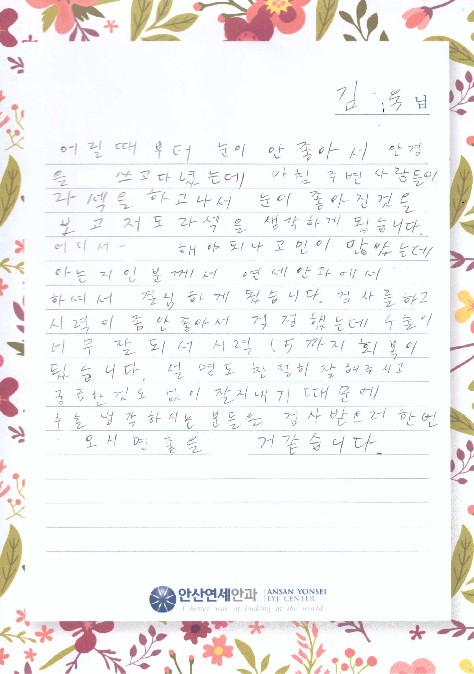 김 욱 님
어릴때부터 눈이 안좋아서 안경
을 쓰고다녔는데 마침 주변 사람들이
라섹을 하고나서 눈이 좋아진것을
보고저도라섹을 생각하게 됬습니다.
어디서 해야되나고민이 많았는데
아는지인분께서 연세안과에서
하셔서 결심하게 됬습니다. 검사를하고
시력이 좀안좋아서 걱정했는데 수술이
너무 잘되서 시력 1.5까지 회복이
됬습니다. 설명도 친절히 잘해주시고
궁금한것도 없이 잘지내기때문에
수술생각하시는 분들은 검사받으러한번
오시면 좋을 거같습니다.
안산연세안과 ANSAN YONSEI
EYE CENTER
A better way of looking at the world